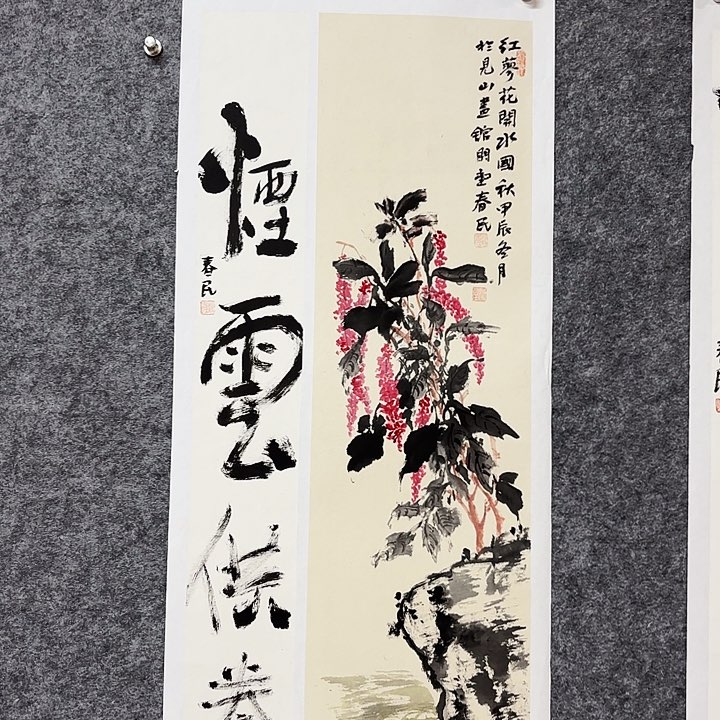 紅蓼花開水國秋甲辰冬月
於見山畫館明堂春民
煙雲供養
春民